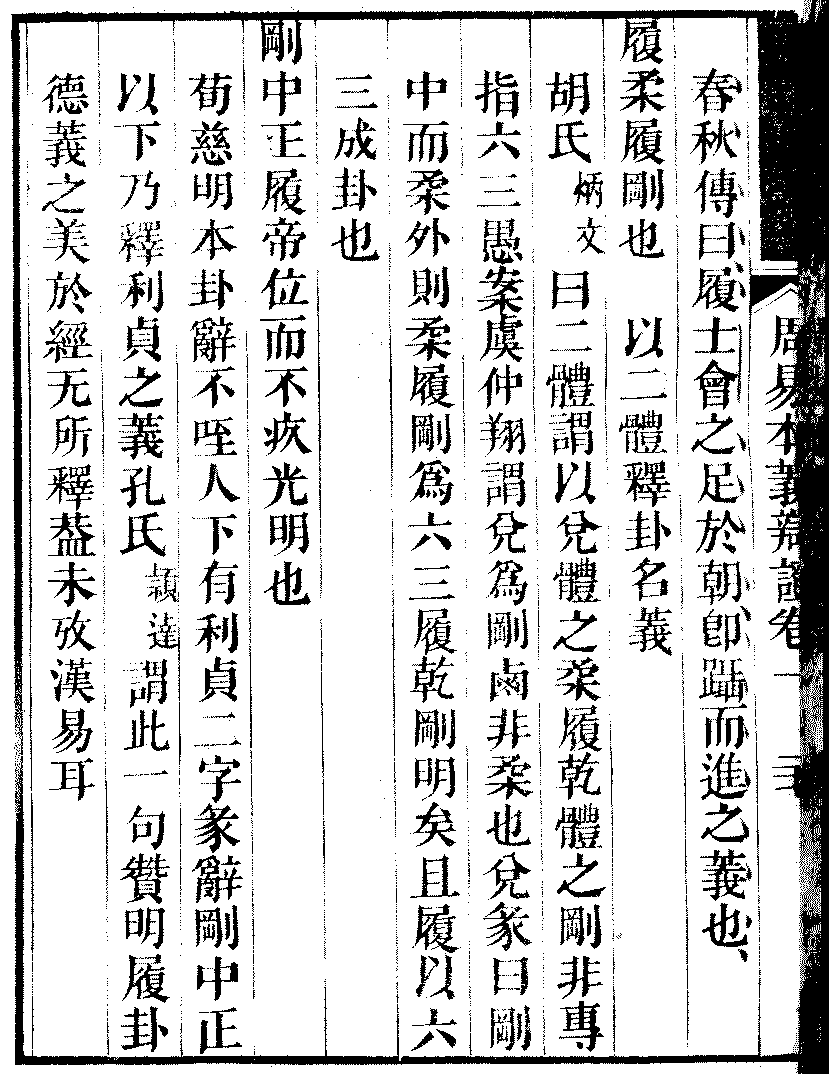 周易本義辯證卷一
春秋傳曰履士會之足於朝卽躡而進之義也
履柔履剛也　以二體釋卦名義
胡氏炳文曰二體謂以兌體之柔履乾體之剛非專
指六三愚案虞仲翔謂兌爲剛鹵非柔也兌彖曰剛
中而柔外則柔履剛爲六三履乾剛明矣且履以六
三成卦也
剛中正履帝位而不疚光明也
荀慈明本卦辭不咥人下有利貞二字彖辭剛中正
以下乃釋利貞之義孔氏穎達謂此一句贊明履卦
德義之美於經无所釋葢未攷漢易耳